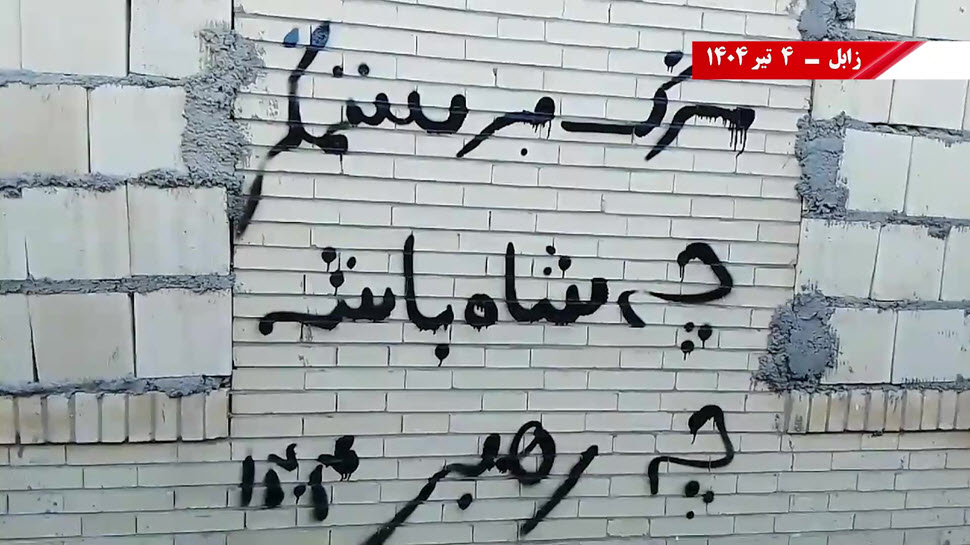 زابل – ۴ تیر ۱۴۰۴
مرگ بر ستمگر
چه شاه باشه
چه رهبر